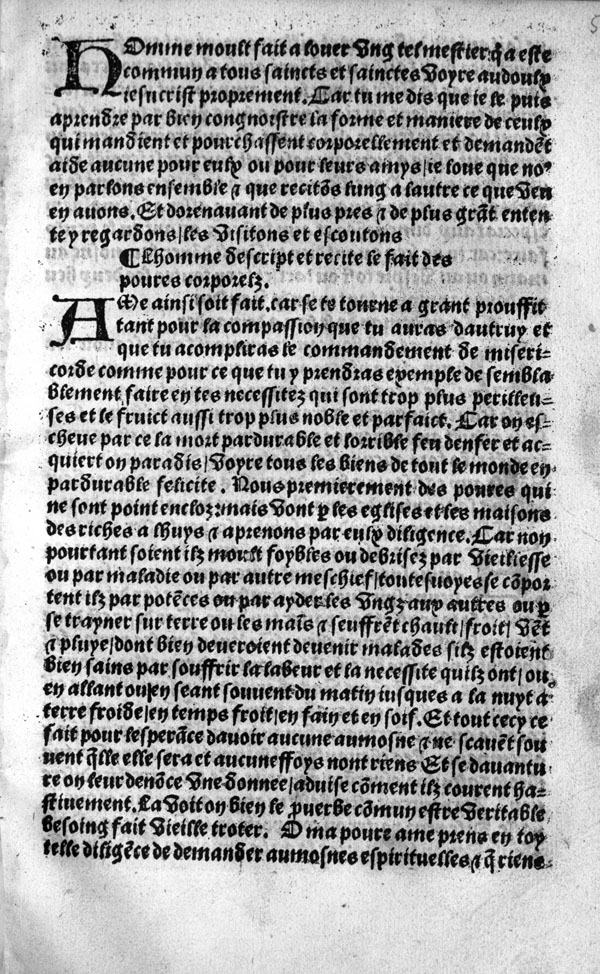 HOmme moult fait a louer vng tel mestier q̃ a este
commun a tous saincts et sainctes voyre au doulx
iesucrist proprement. Car tu me dis que ie le puis
aprendre par bien congnoistre la forme et maniere de ceulx
qui mandient et pourchassent corporellement et demandẽt
aide aucune pour eulx ou pour leurs amys/ie loue que no⁹
en parlons ensemble ⁊ que recitõs lung a lautre ce que veu
en auons. Et dorenauant de plus pres ⁊ de plus grãt enten
te y regardons/les visitons et escoutons
¶Lhomme descript et recite le fait des
poures corporelz.
AMe ainsi soit fait.car se te tourne a grant prouffit
tant pour la compassion que tu auras dautruy et
que tu acompliras le commandement de miseri-
corde comme pour ce que tu y prendras exemple de sembla
blement faire en tes necessitez qui sont trop plus perilleu-
ses et le fruict aussi trop plus noble et parfaict. Car on es-
cheue par ce la mort pardurable et lorrible feu denfer et ac-
quiert on paradis/voyre tous les biens de tout le monde en
pardurable felicite. Nous premierement des poures qui
ne sont point encloz:mais vont ꝑ les eglises et les maisons
des riches a lhuys ⁊ aprenons par eulx diligence. Car non
pourtant soient ilz moult foybles ou debrisez par vieillesse
ou par maladie ou par autre meschief/toutesuoyes se cõpor
tent ilz par potẽces ou par ayder les vngz aux autres ou ꝑ
se trayner sur terre ou les mais̃ ⁊ seuffrẽt chault/froit/vẽt
⁊ pluye/dont bien deueroient deuenir malades silz estoient
bien sains par souffrir la labeur et la necessite quilz ont/ou
en allant ou en seant souuent du matin iusques a la nuyt a
terre froide/en temps froit/en fain et en soif. Et tout cecy ce
fait pour lesperãce dauoir aucune aumosne ⁊ ne scauẽt sou
uent q̃lle elle sera et aucuneffoys nont riens Et se dauantu
re on leur denõce vne donnee/aduise cõment ilz courent ha-
stiuement. La voit on bien le ꝓuerbe cõmun estre veritable
besoing fait vieille troter. O ma poure ame prens en toy
telle diligẽce de demander aumosnes espirituelles ⁊ q̃ riens